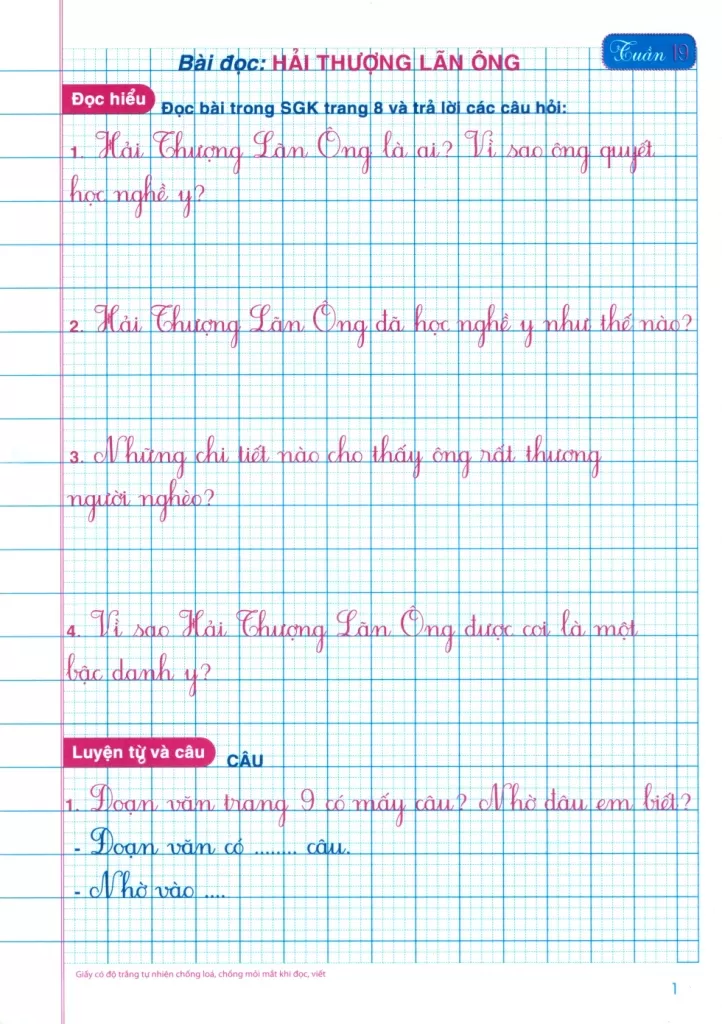 Tuần 19
Bài đọc: HẢI THƯỢNG LÃN ÔNG
Đọc hiểu
Đọc bài trong SGK trang 8 và trả lời các câu hỏi:
1. Hải Thượng Lãn Ông là ai? Vì sao ông quyết
học nghề y?
2. Hải Thượng Lãn Ông đã học nghề y như thế nào?
3. Những chi tiết nào cho thấy ông rất thương
người nghèo?
4. Vì sao Hải Thượng Lãn Ông được coi là một
bậc danh y?
Luyện từ và câu
CÂU
1. Đoạn văn trang 9 có mấy câu? Nhờ đâu em biết?
- Đoạn văn có ........ câu.
- Nhờ vào ....
Giấy có độ trắng tự nhiên chống loá, chống mỏi mắt khi đọc, viết
1